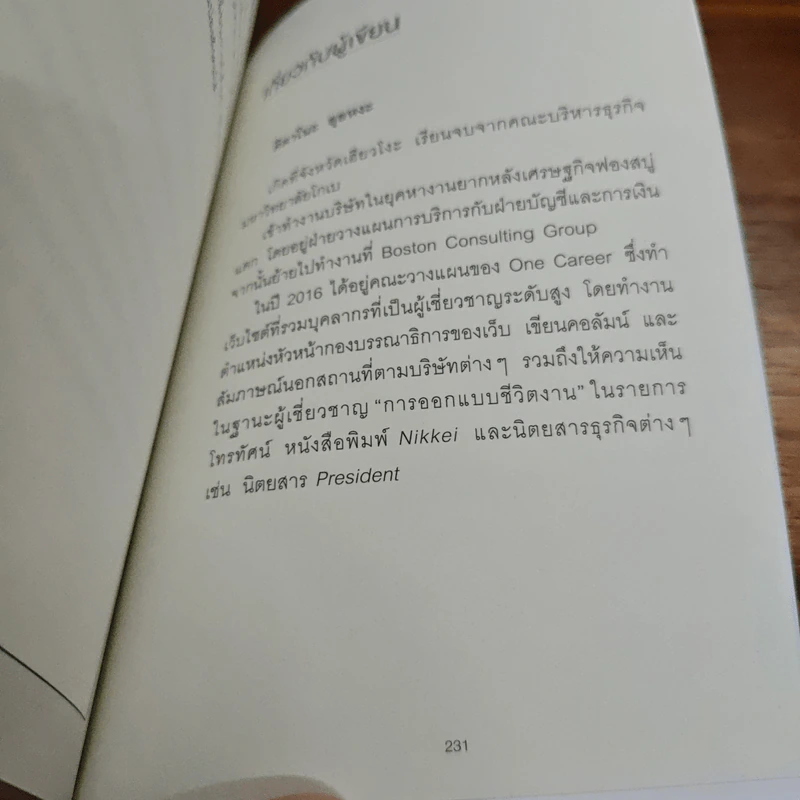 เกี่ยวกับผู้เขียน
คิตาโนะ ยูอิหงะ
เกิดที่จังหวัดเฮียวโงะ เรียนจบจากคณะบริหารธุรกิจ
มหาวิทยาลัยโกเบ
เข้าทำงานบริษัทในยุคหางานยากหลังเศรษฐกิจฟองสบู่
แตก โดยอยู่ฝ่ายวางแผนการบริการกับฝ่ายบัญชีและการเงิน
จากนั้นย้ายไปทำงานที่ Boston Consulting Group
ในปี 2016 ได้อยู่คณะวางแผนของ One Career ซึ่งทำ
เว็บไซต์ที่รวมบุคลากรที่เป็นผู้เชี่ยวชาญระดับสูง โดยทำงาน
ตำแหน่งหัวหน้ากองบรรณาธิการของเว็บ เขียนคอลัมน์ และ
สัมภาษณ์นอกสถานที่ตามบริษัทต่างๆ รวมถึงให้ความเห็น
ในฐานะผู้เชี่ยวชาญ “การออกแบบชีวิตงาน” ในรายการ
โทรทัศน์ หนังสือพิมพ์ Nikkei และนิตยสารธุรกิจต่างๆ
เช่น นิตยสาร President
231